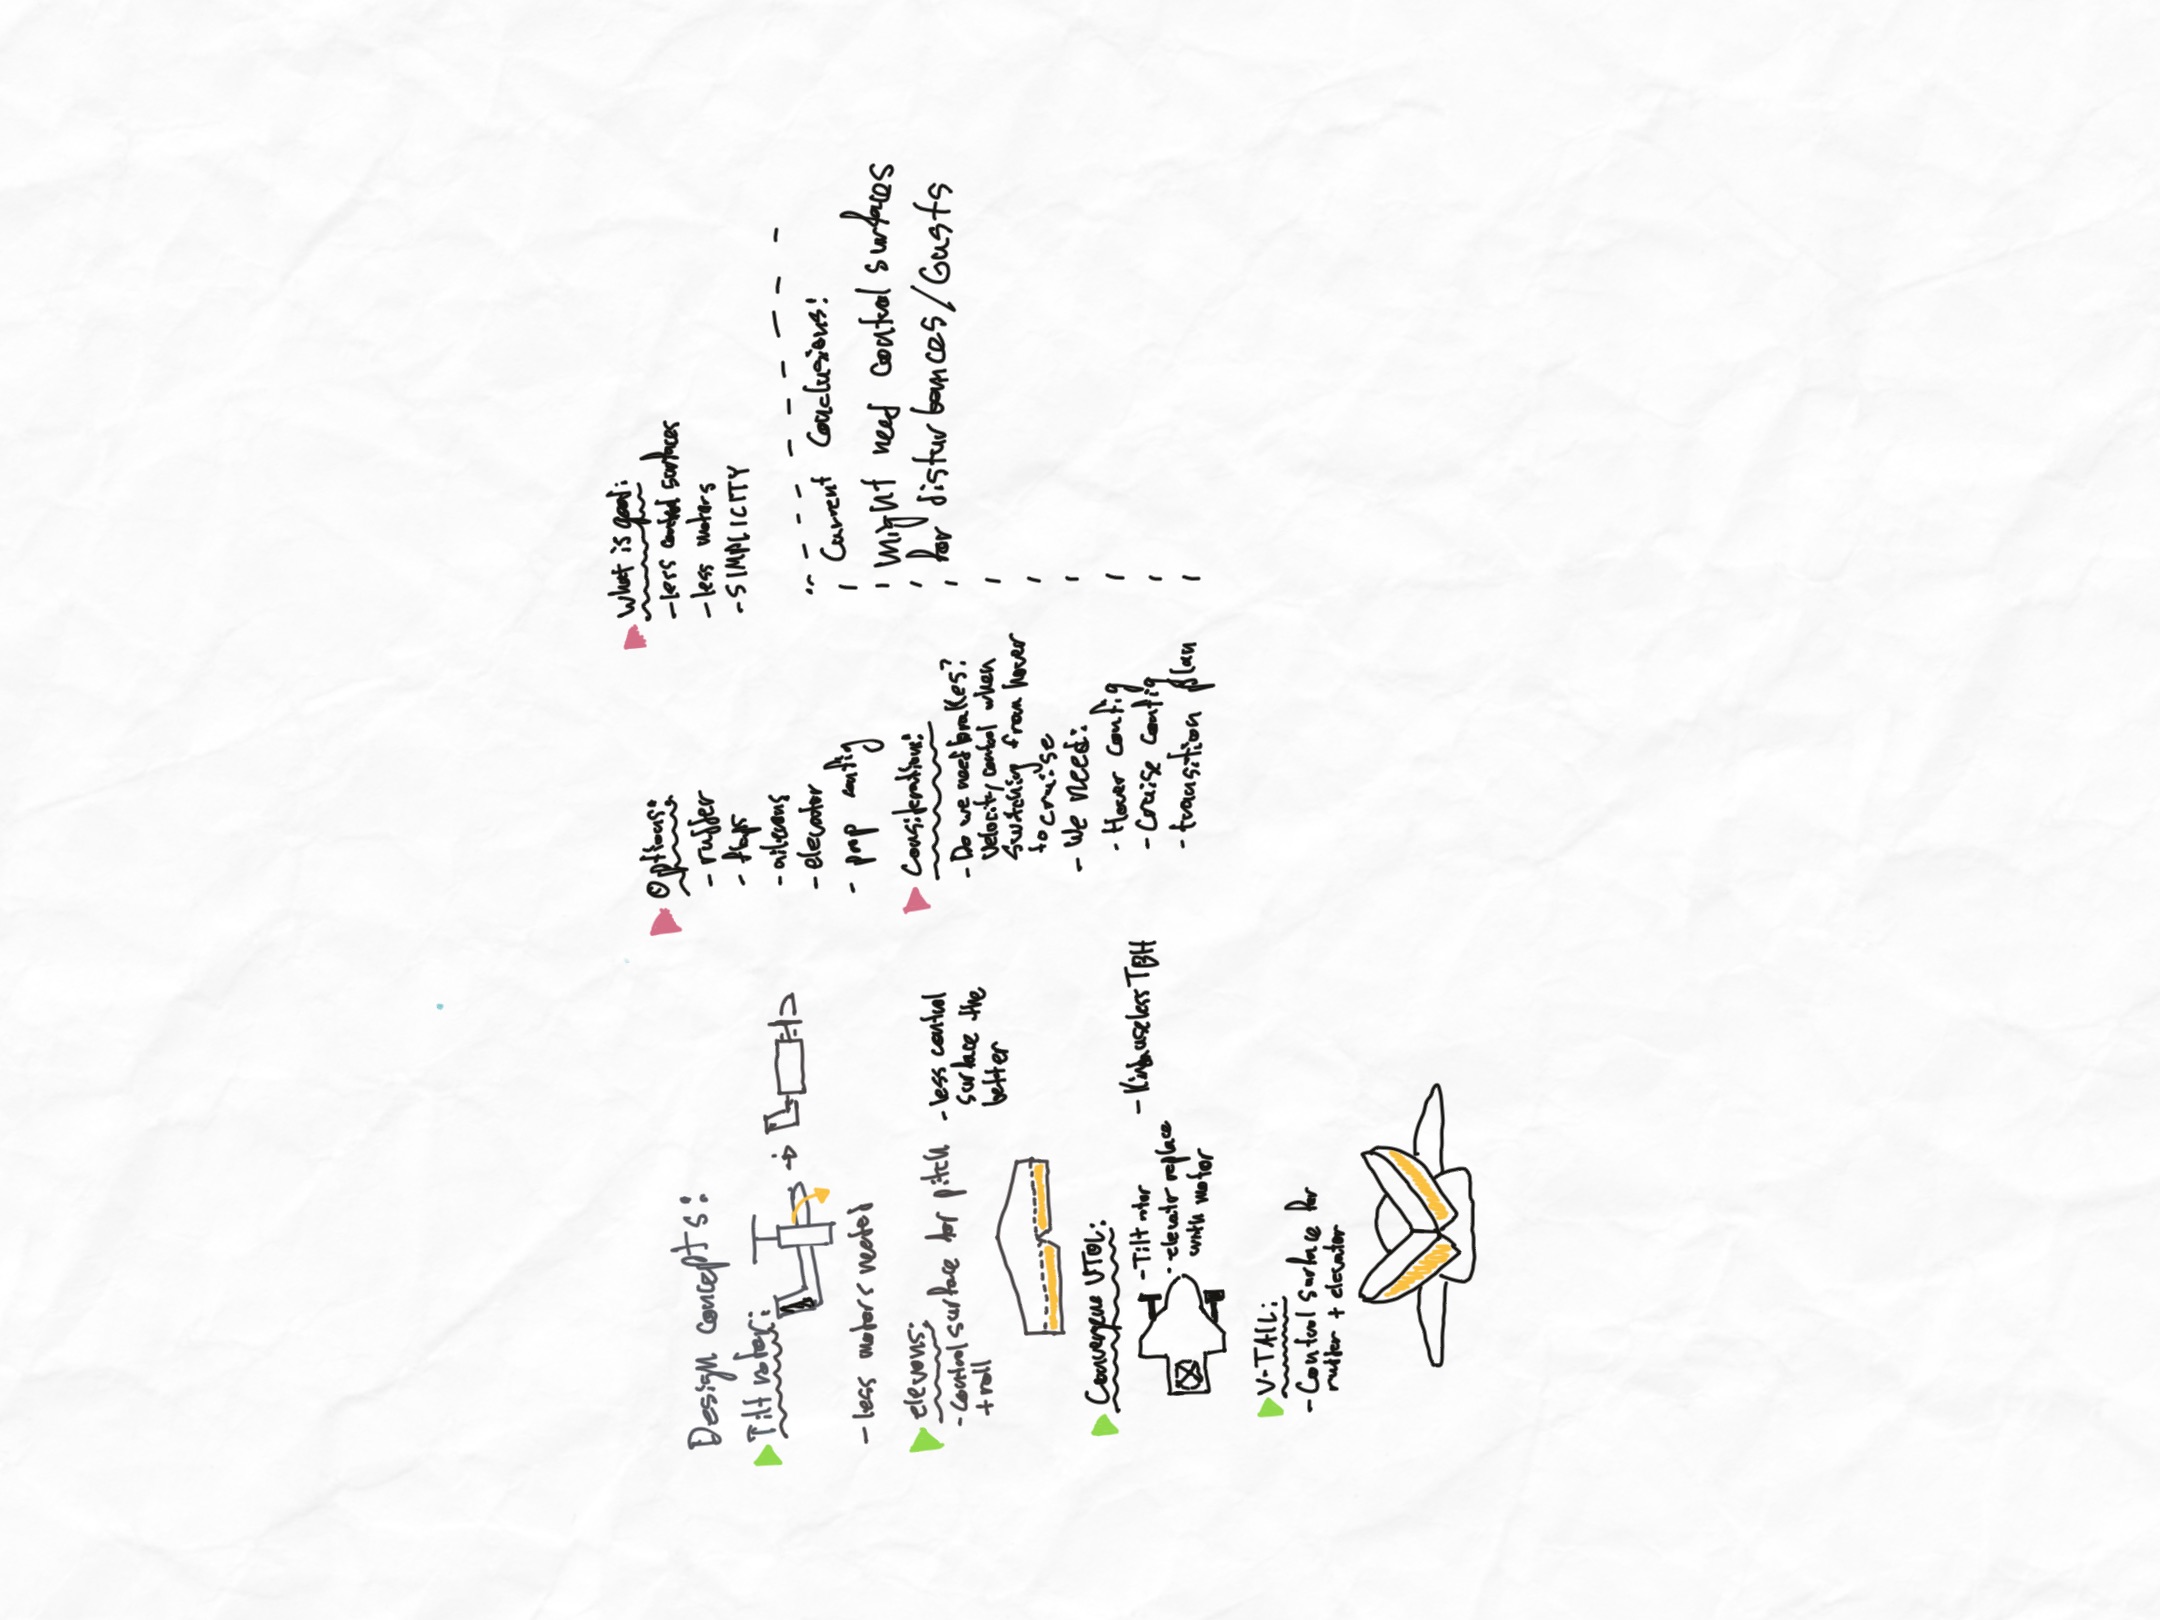 Design concepts:
Tilt rotor:
- less motors needed
elevons:
- control surface for pitch
+ roll
- less control
surface the
better
Convergene VTOL:
- Tilt rotor
- elevator replace
with motor
- Kinda useless TBH
V-TAIL:
- Control surface for
rudder + elevator
Options:
- rudder
- flaps
- ailerons
- elevator
- prop config
Considerations:
- Do we need brakes?
Velocity control when
switching from hover
to cruise
- We need:
- Hover config
- Cruise config
- transition plan
What is good:
- less control surfaces
- less motors
- SIMPLICITY
Current Conclusions:
might need control surfaces
for disturbances/Gusts